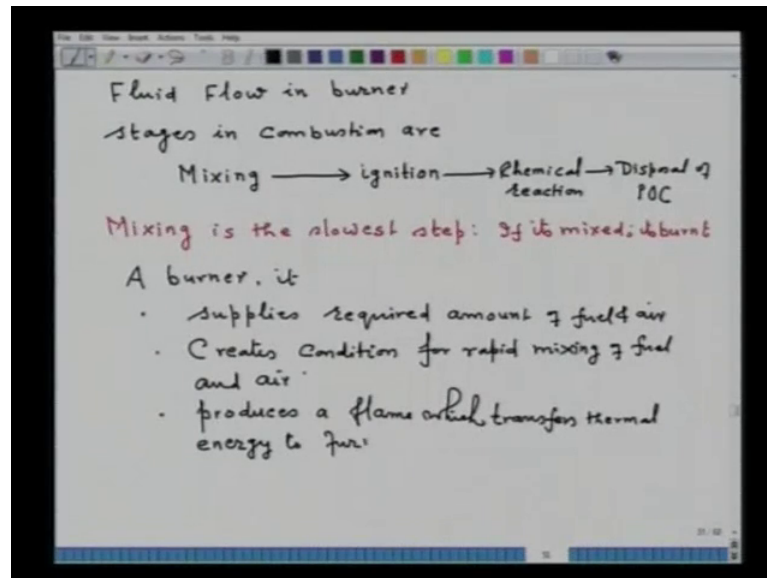 File Edit View Insert Actions Tools Help
Fluid Flow in burner
stages in combustion are
Mixing → ignition → Chemical → Disposal of
reaction POC
Mixing is the slowest step: If its mixed; its burnt
A burner, it
· supplies required amount of fuel & air
· Creates condition for rapid mixing of fuel
and air
· produces a flame which transfers thermal
energy to fur